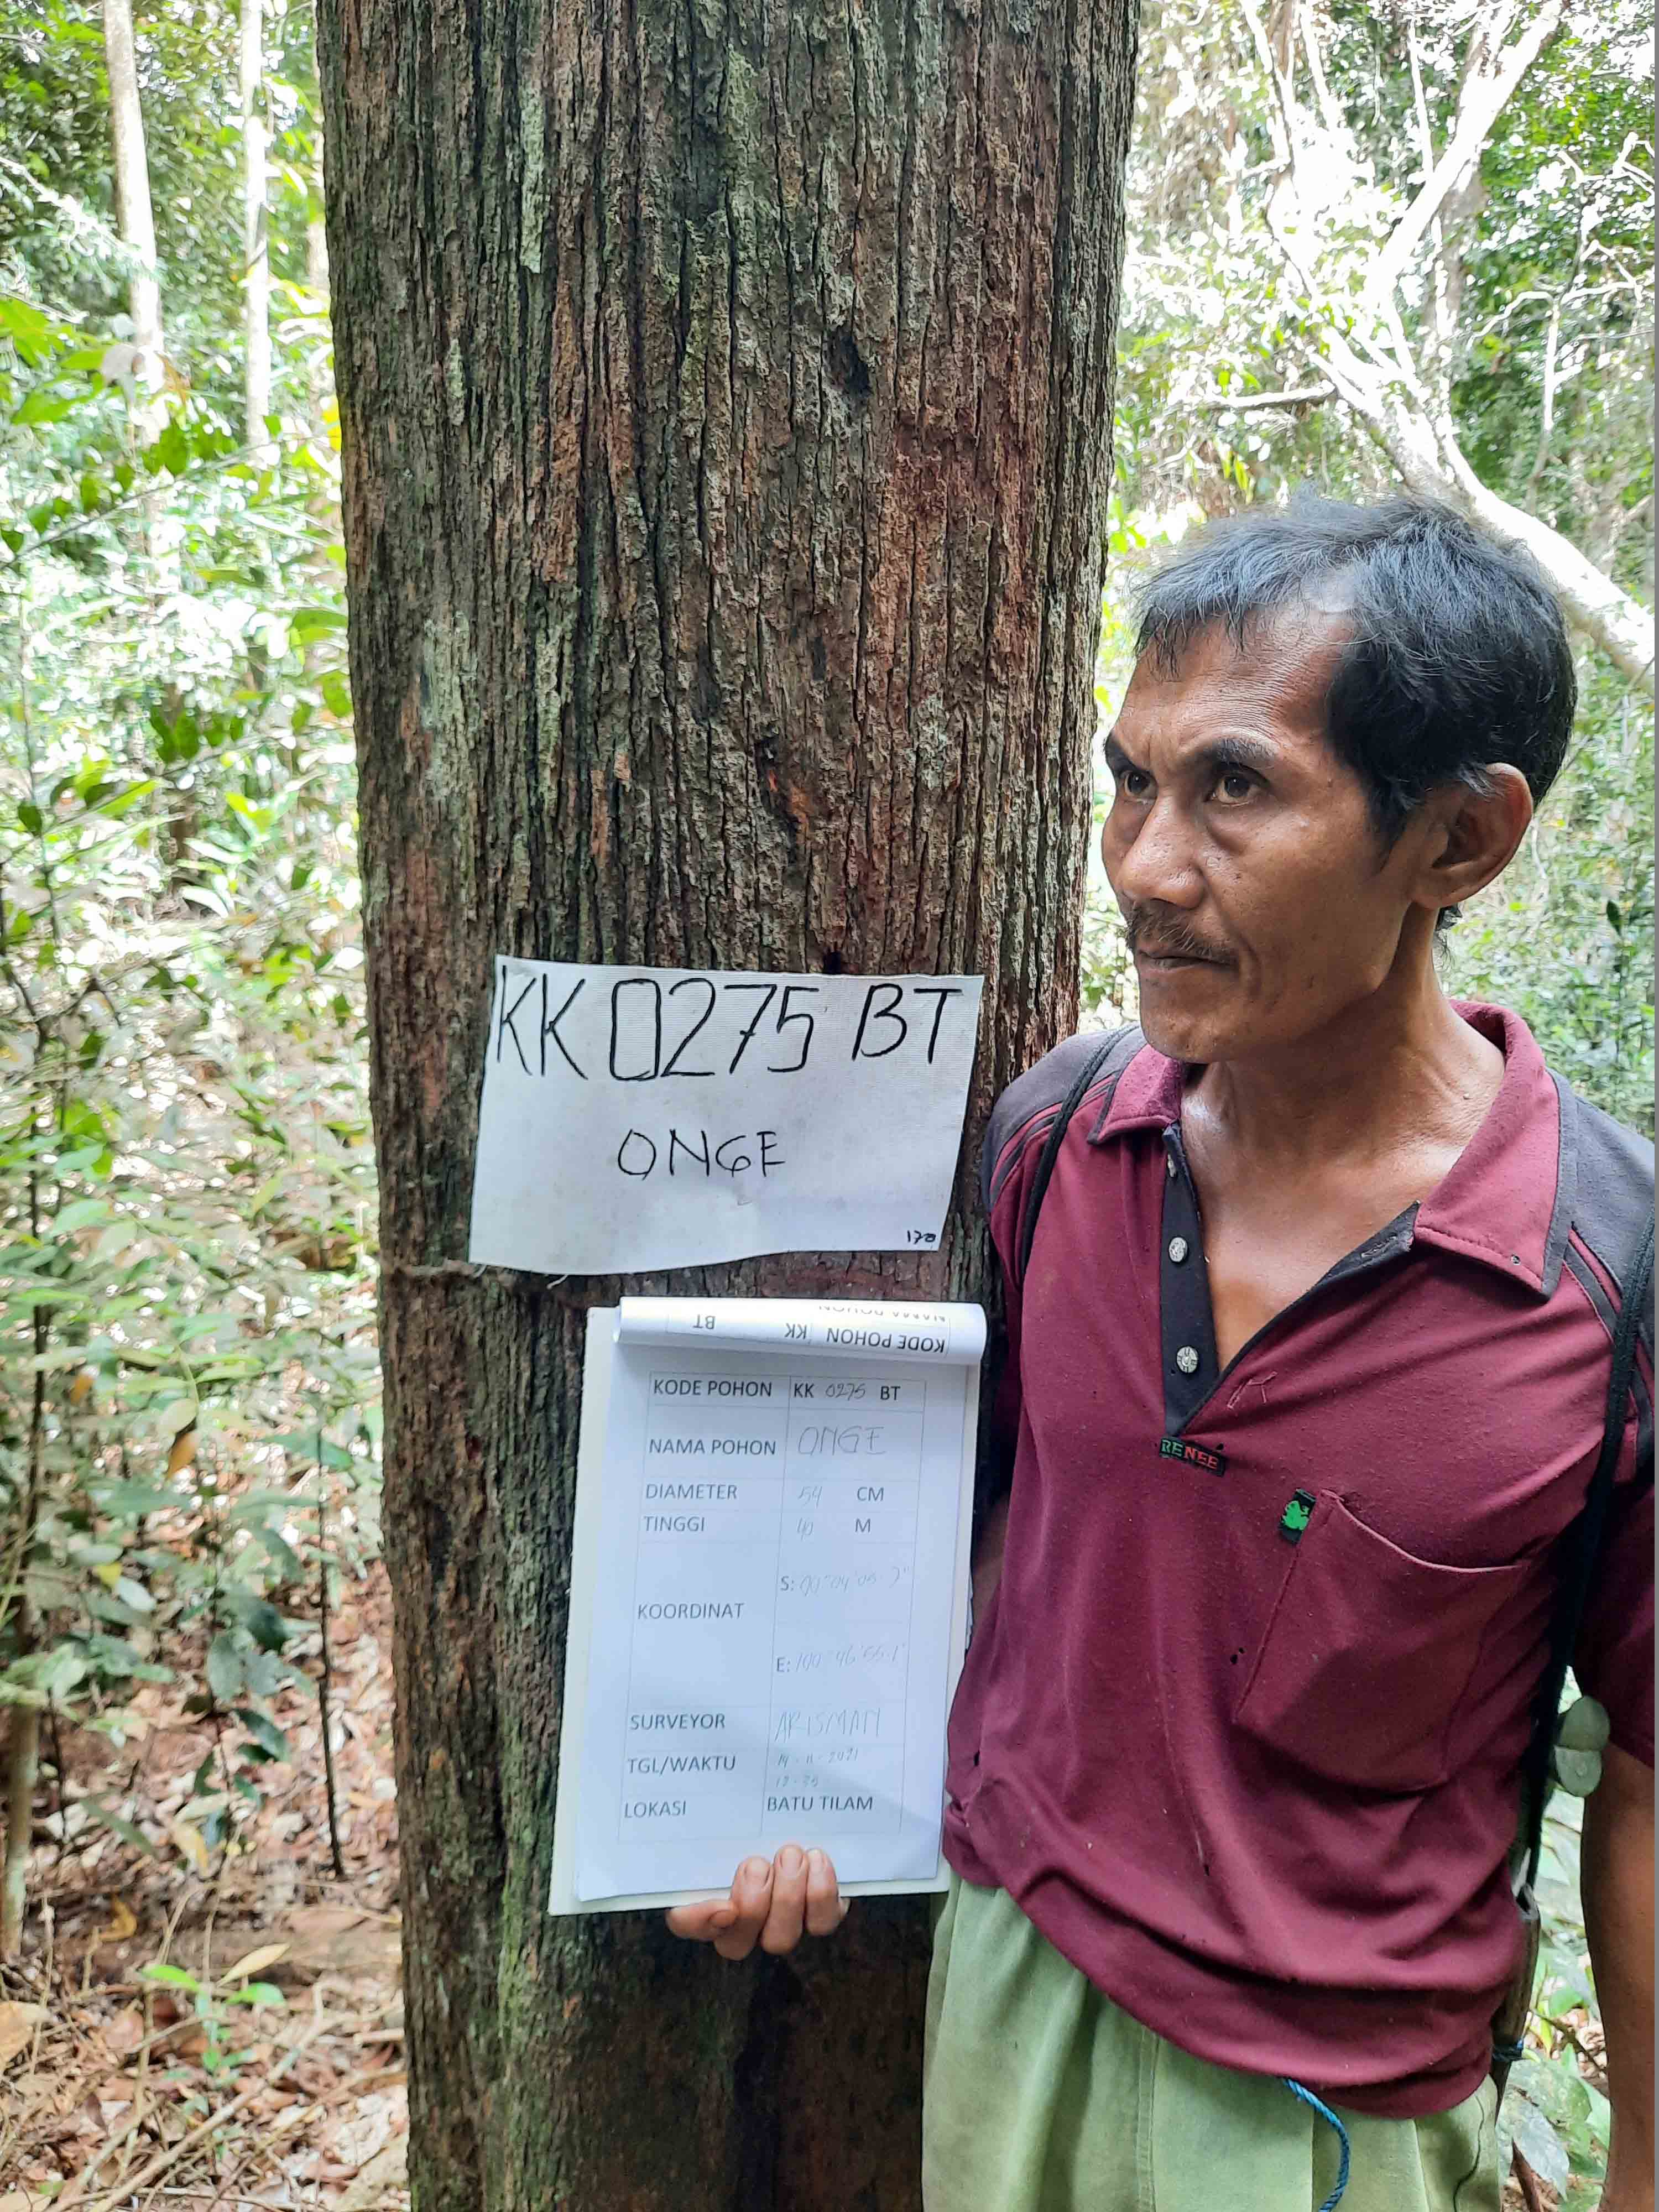 KK 0275 BT
ONGE
170
NAMA POHON
KODE POHON KK BT
KODE POHON KK 0275 BT
NAMA POHON ONGE
DIAMETER 54 CM
TINGGI 40 M
KOORDINAT
S:
E: 100° 46' 55.1"
SURVEYOR ARISMAN
TGL/WAKTU 14-11-2021
12-35
LOKASI BATU TILAM
RENEE